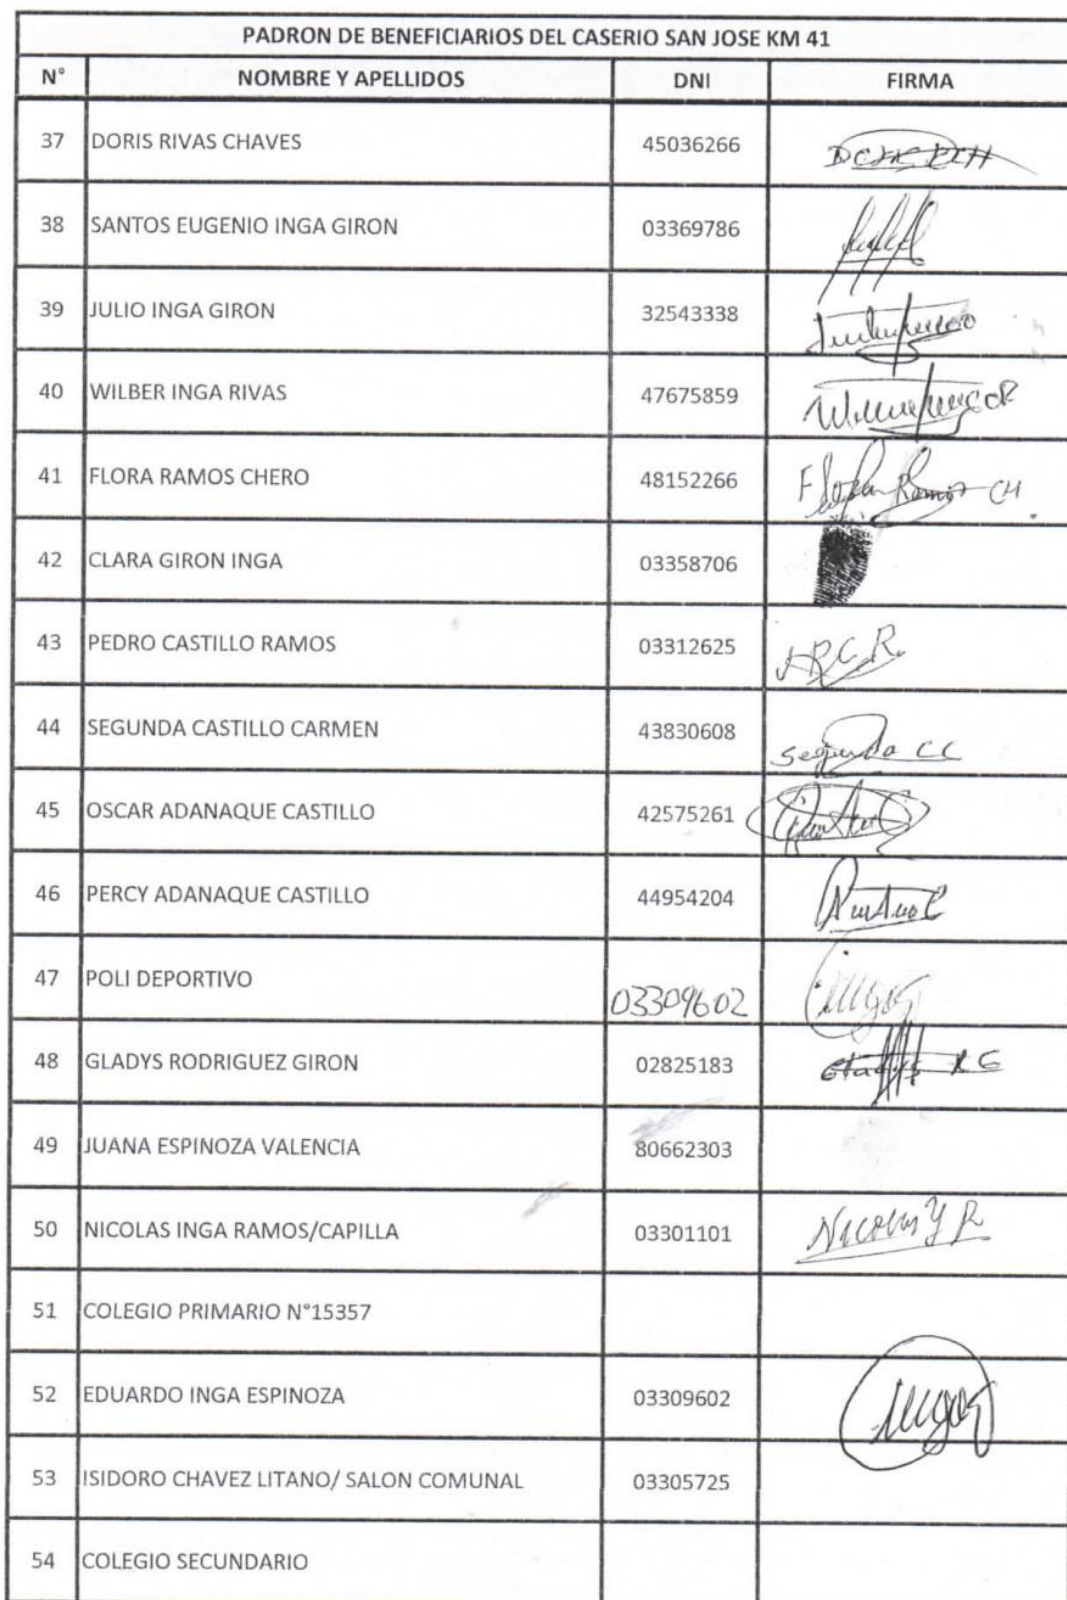 PADRON DE BENEFICIARIOS DEL CASERIO SAN JOSE KM 41
N° NOMBRE Y APELLIDOS DNI FIRMA
37 DORIS RIVAS CHAVES 45036266
38 SANTOS EUGENIO INGA GIRON 03369786
39 JULIO INGA GIRON 32543338
40 WILBER INGA RIVAS 47675859
41 FLORA RAMOS CHERO 48152266 Ramos CH
42 CLARA GIRON INGA 03358706
43 PEDRO CASTILLO RAMOS 03312625
44 SEGUNDA CASTILLO CARMEN 43830608 Segunda CC
45 OSCAR ADANAQUE CASTILLO 42575261
46 PERCY ADANAQUE CASTILLO 44954204
47 POLI DEPORTIVO 03309602
48 GLADYS RODRIGUEZ GIRON 02825183
49 JUANA ESPINOZA VALENCIA 80662303
50 NICOLAS INGA RAMOS/CAPILLA 03301101 Nicolas Y R
51 COLEGIO PRIMARIO N°15357
52 EDUARDO INGA ESPINOZA 03309602
53 ISIDORO CHAVEZ LITANO/ SALON COMUNAL 03305725
54 COLEGIO SECUNDARIO